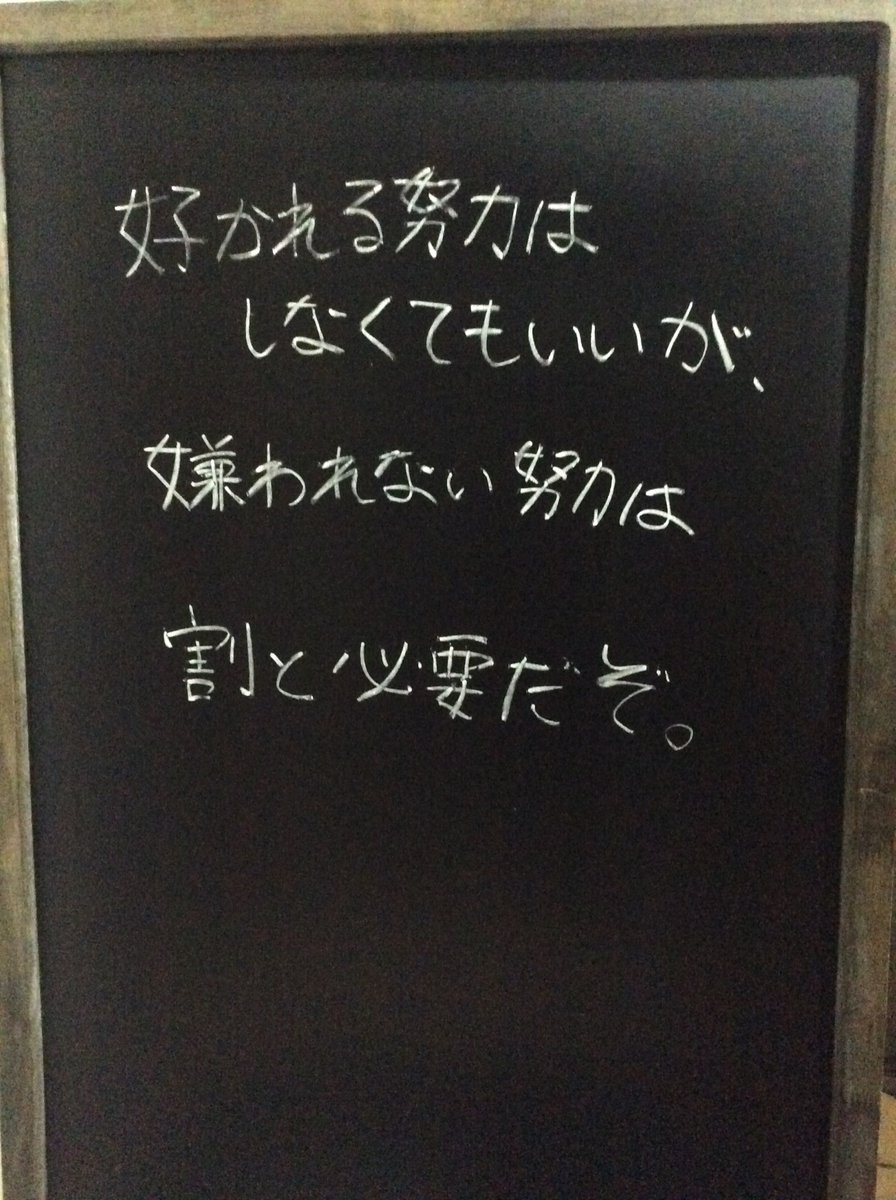 好かれる努力は
しなくてもいいが、
嫌われない努力は
割と必要だぞ。